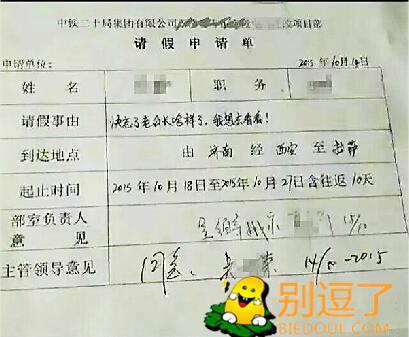 中铁二十局集团有限公司 项目部
请假申请单
申请单位: 2015年10月14日
姓名 职务
请假事由 快忘了老公长啥样了,我想去看看!
到达地点 由济南经西安至
起止时间 2015年10月18日至2015年10月27日含往返10天
部室负责人
意见
主管领导意见 同意. 14/10-2015
别逗了
BIEDOUL.COM